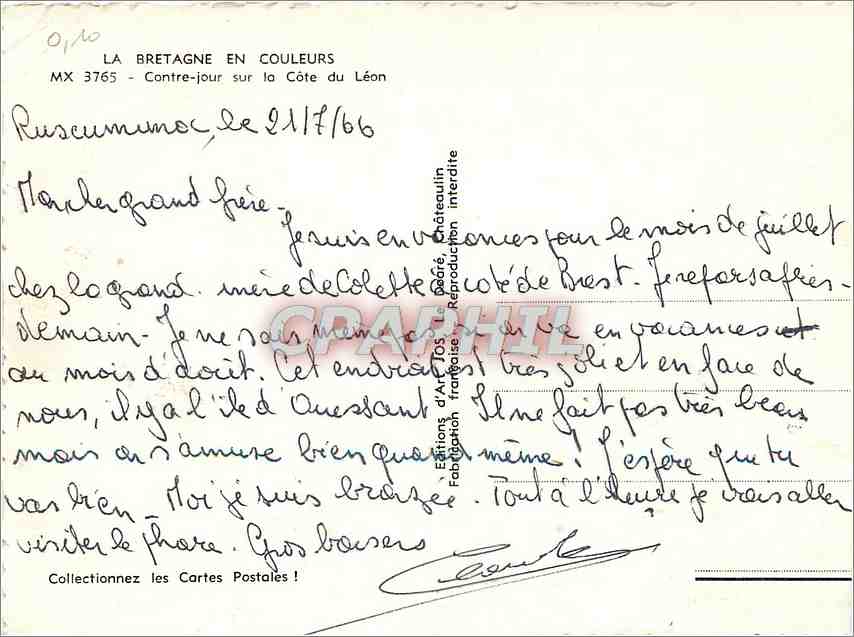 0,10
LA BRETAGNE EN COULEURS
MX 3765 - Contre-jour sur la Côte du Léon
Ruscumunoc, le 21/7/66
Mon cher grand frère -
Je suis en vacances pour le mois de juillet
chez la grand-mère de Colette à côté de Brest. Je repars après-
demain - Je ne sais même pas si on va en vacances
au mois d'août. Cet endroit est très joli et en face de
nous, il y a l'île d'Ouessant. Il ne fait pas très beau
mais on s'amuse bien quand même! J'espère que tu
vas bien - Moi je suis bronzée. Tout à l'heure je vais aller
visiter le phare. Gros baisers
Editions d'Art JOS Le Doaré, Châteaulin
Fabrication française - Reproduction interdite
CPAPHIL
Collectionnez les Cartes Postales !